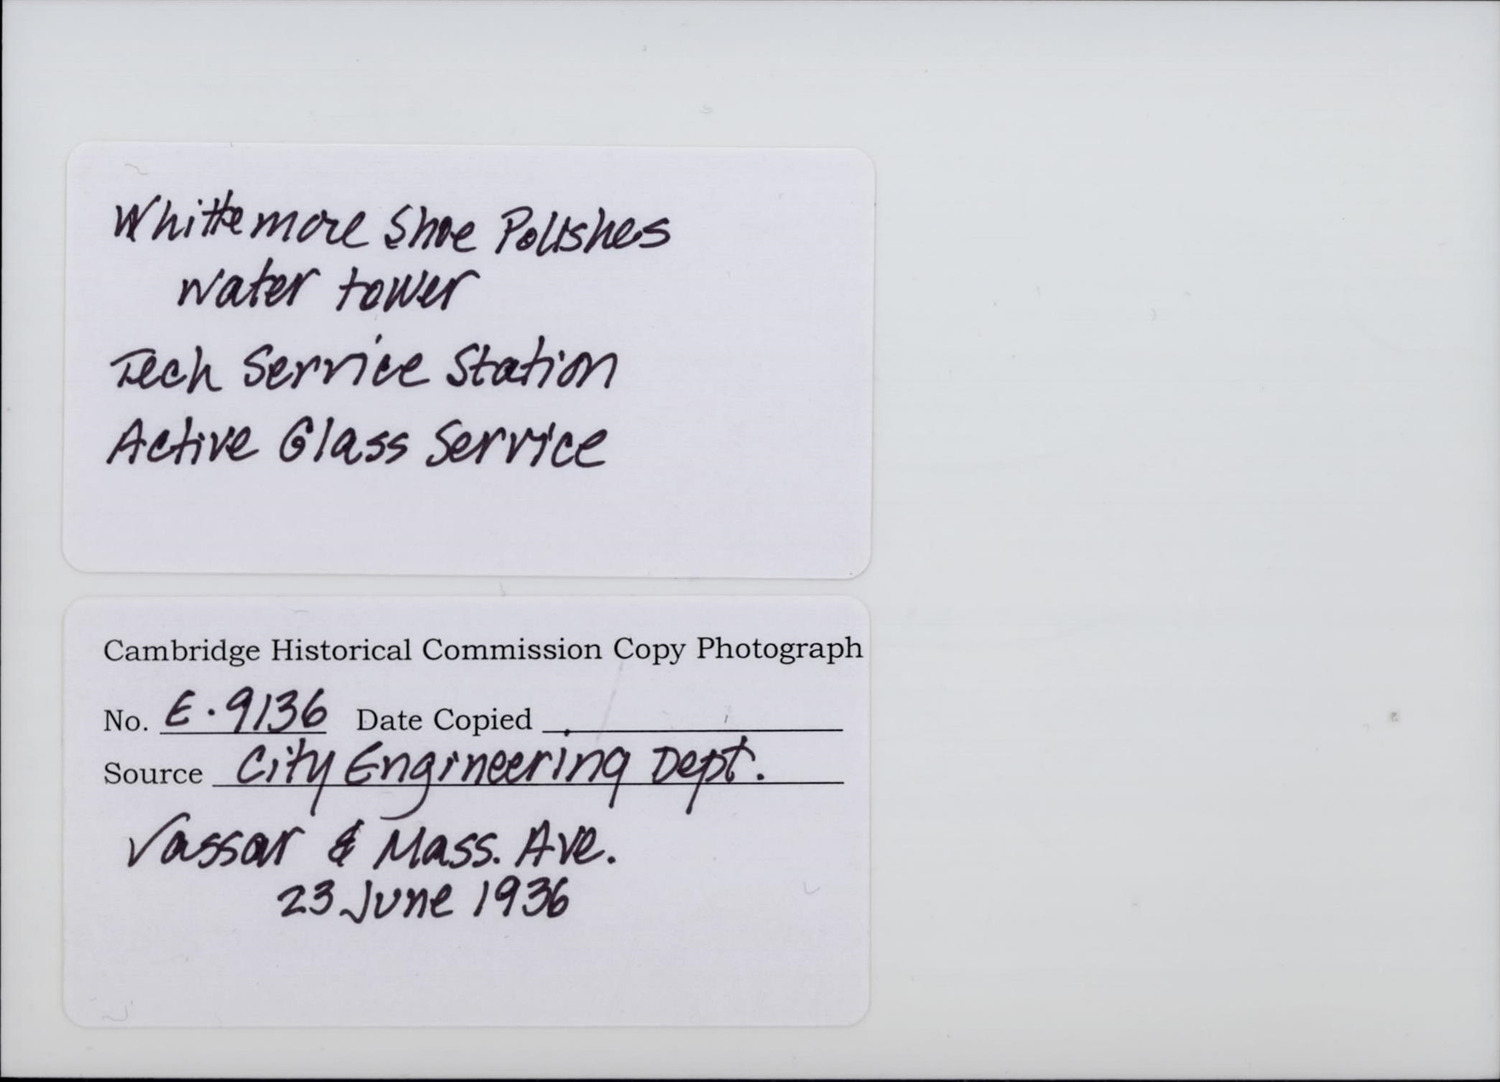 Whittemore Shoe Polishes
water tower
Tech Service Station
Active Glass Service
Cambridge Historical Commission Copy Photograph
No. E.9136 Date Copied
Source City Engineering Dept.
Vassar & Mass. Ave.
23 June 1936